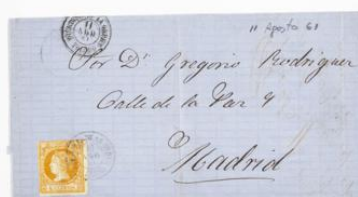 11 Agosto 61
Por Dn Gregorio Rodriguez
Calle de la Paz 4
Madrid